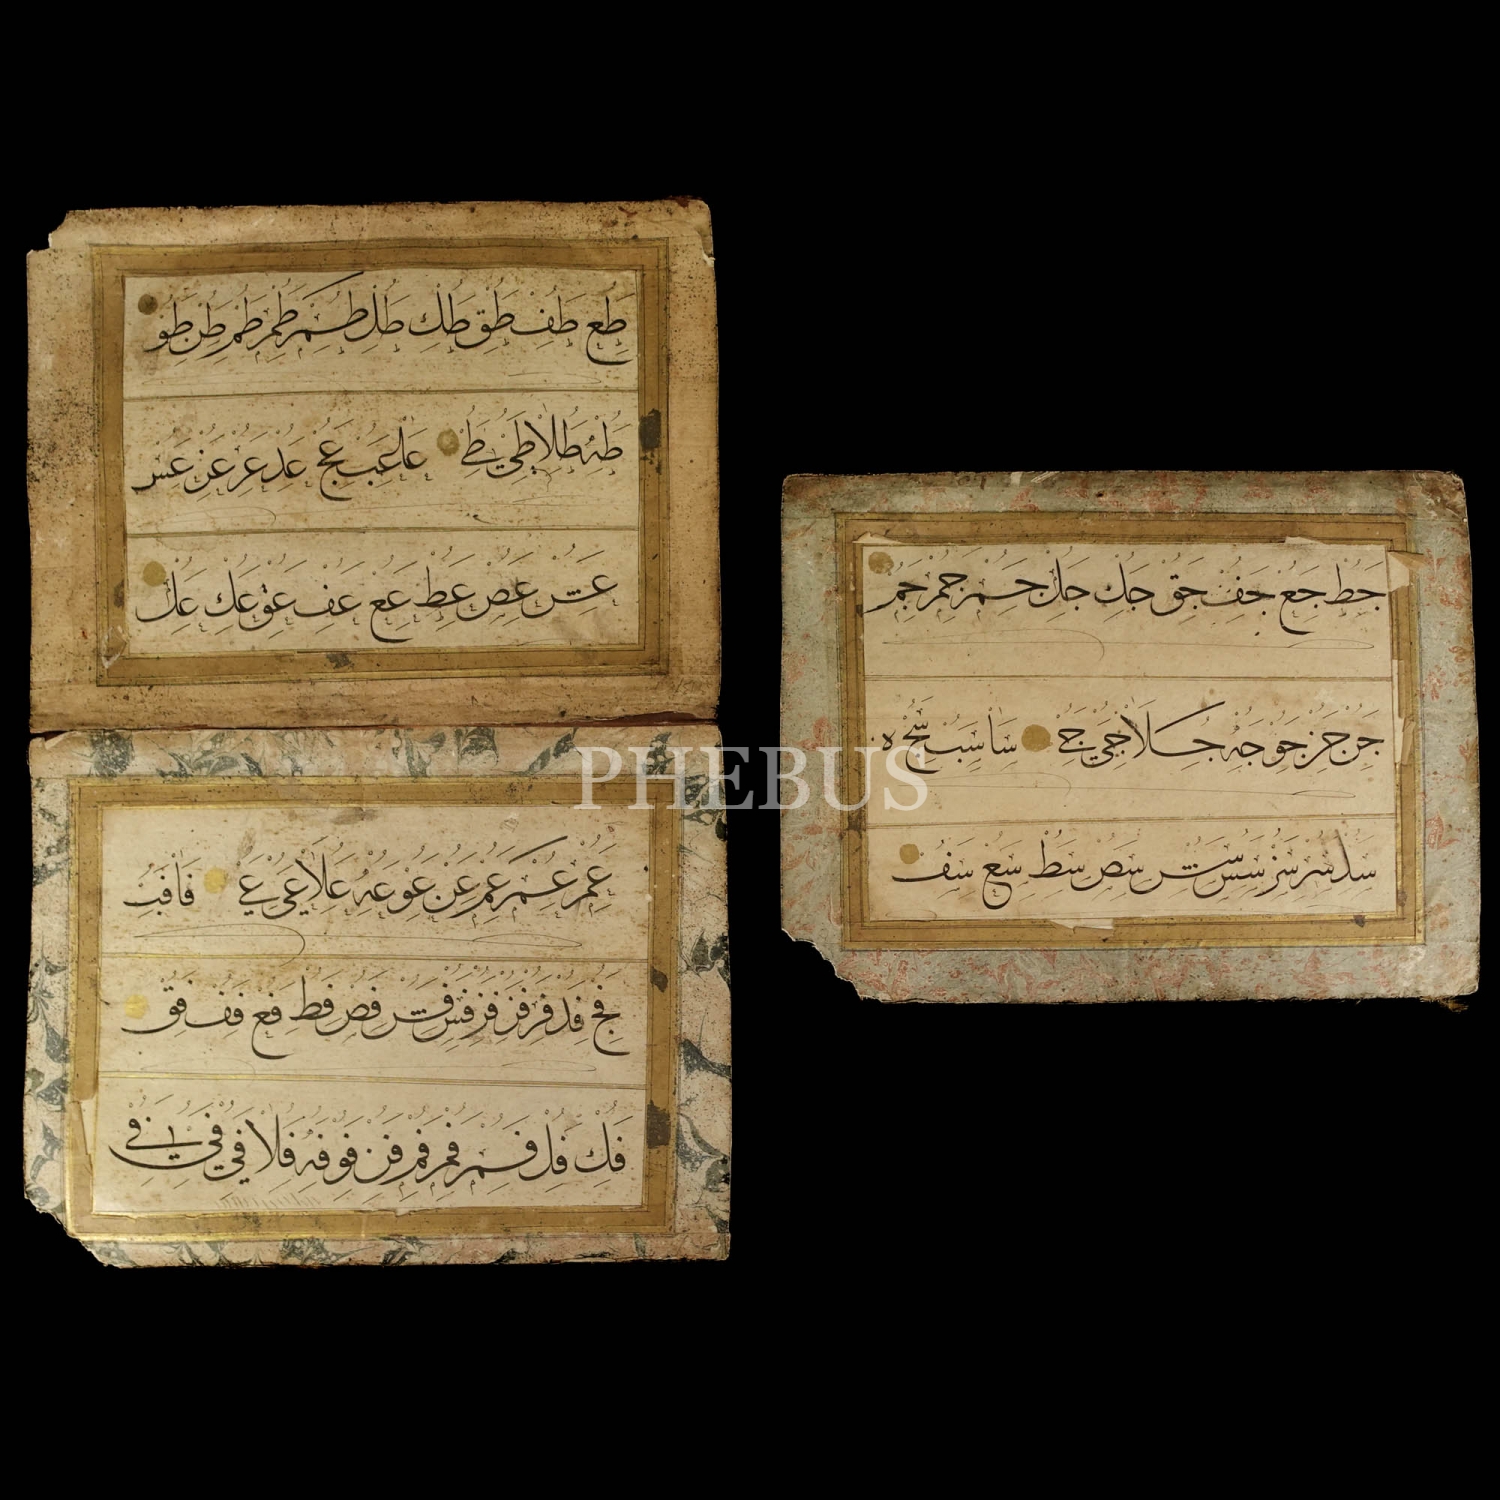 طع طف طق طك طل طم طم طم طن طو
طه طلا طي طے عا عب عج عد عر عز عس
عس عص عط عع عف عق عك عل
عم عم عم عن عو عه علا عي عے فا فب
فج فد فر فز فر فس فس فص فط فع فف فق
فك فل فم فم فم فن فو فه فلا في في
جط جع جف جق جك جل جم جم جم
جن جن جو جه جلا جي جے سا سب سج ه
سد سر سز سس سس سص سط سع سف
PHEBUS